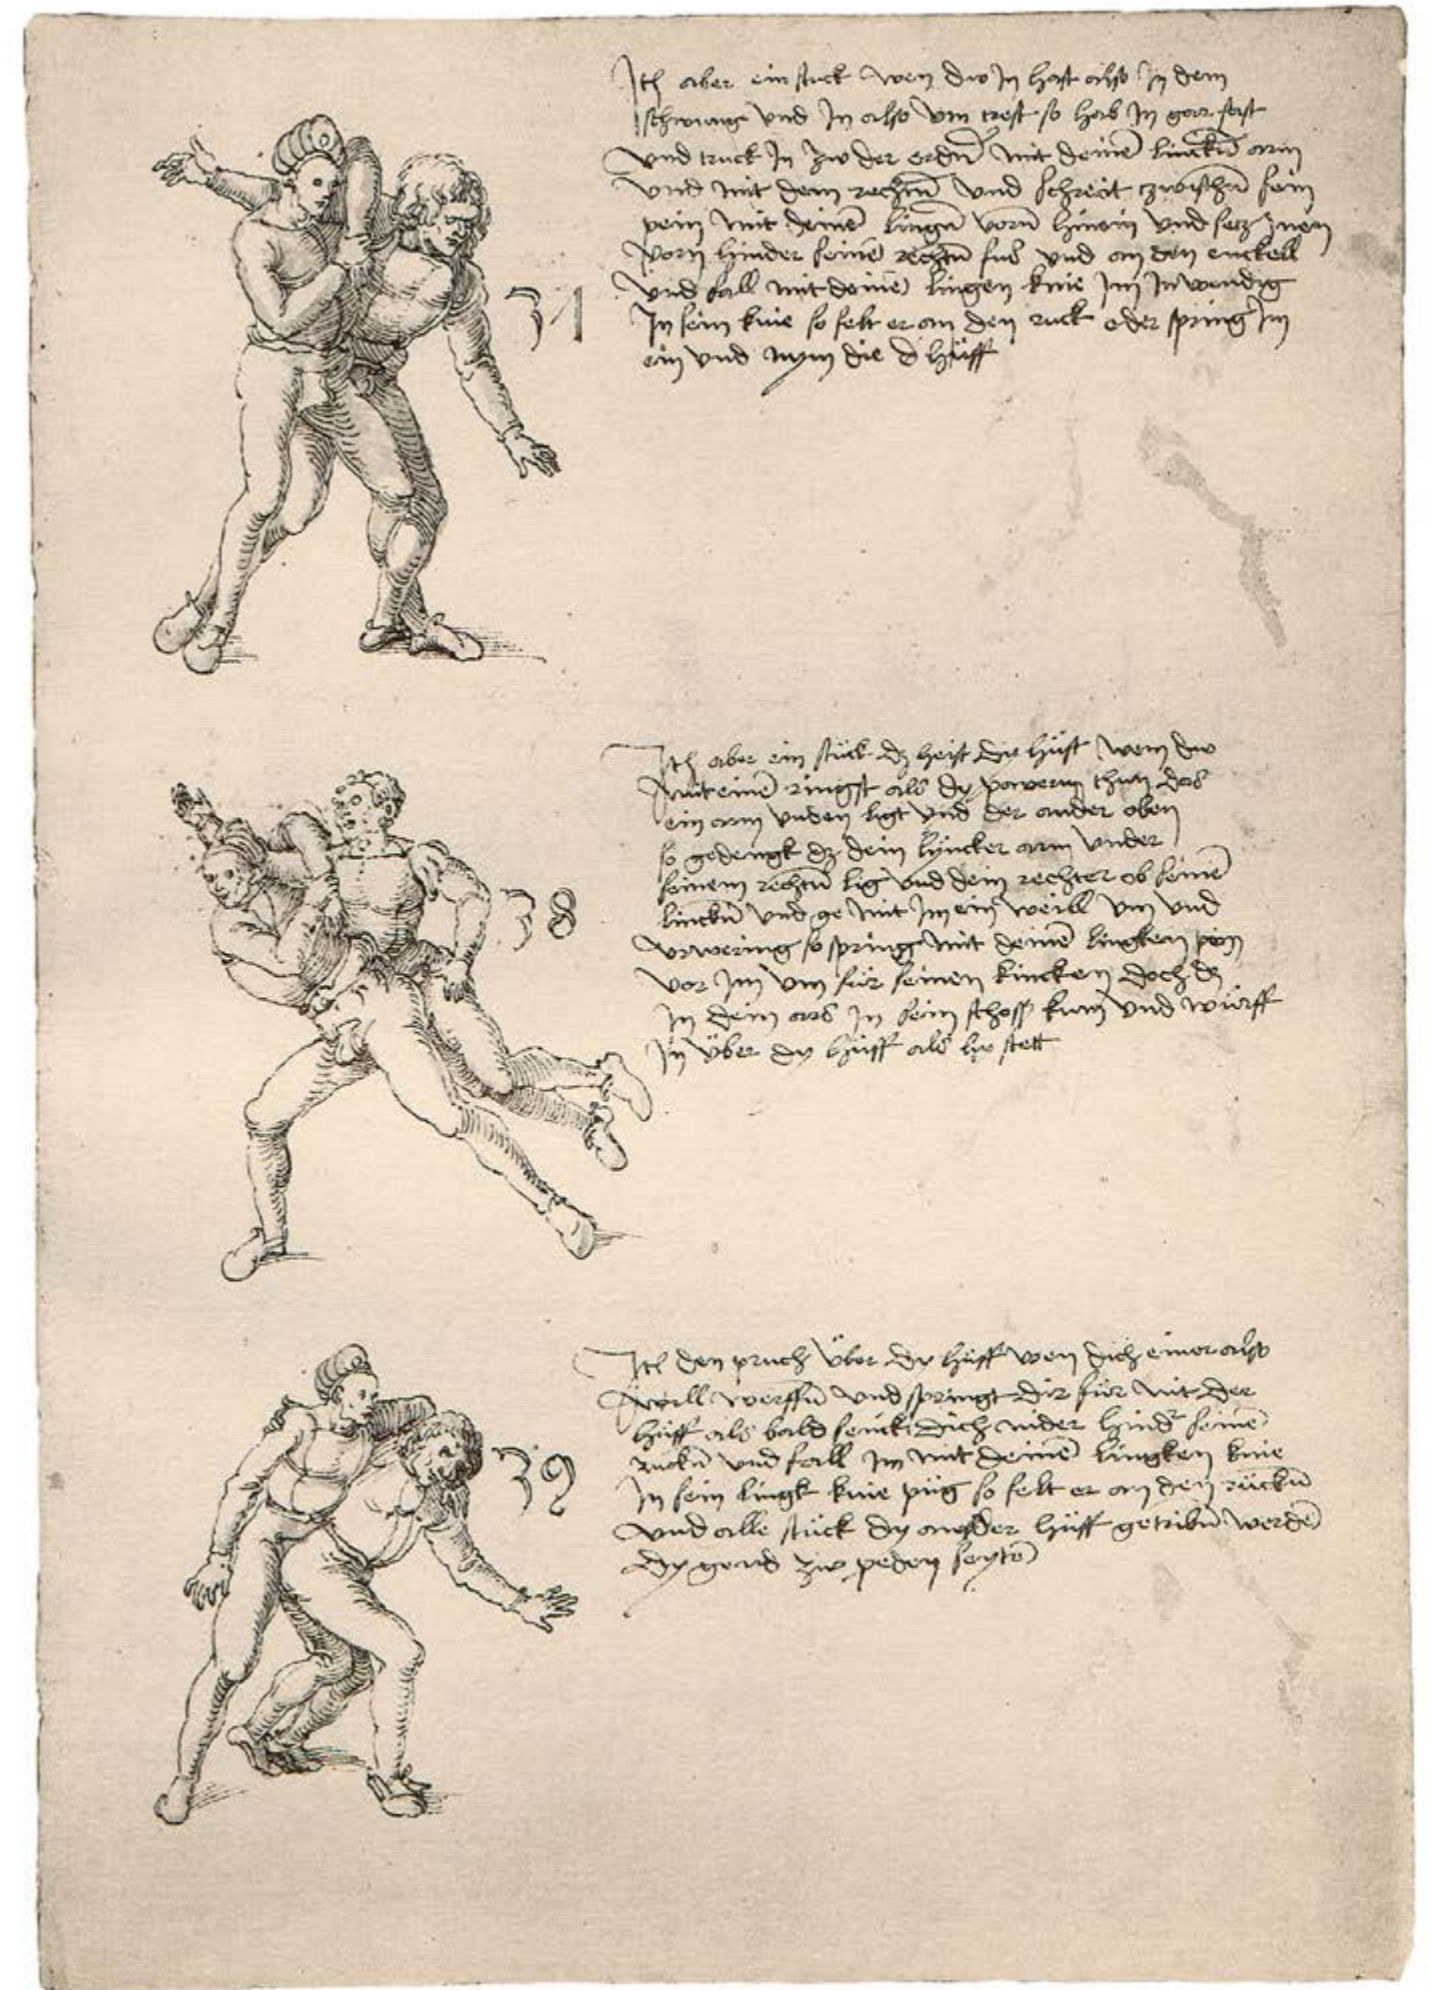 Itl aber ein stuck wen dw in hast also in dem
schwung und in also um trest so hab in gar fast
und truck in zw der erdn̄ mit deinē linckn̄ arm
und mit dem rechtn̄ und schreit zwischn̄ sein
pein mit deinē lingn̄ vorn̄ hinein und setz inen
vorn hinder seinē rechtn̄ fus und an den enckell
und fall mit deinē lingen knie im inwendig
in sein knie so felt er an den ruck oder spring im
ein und nym die d hüff
37
Itl aber ein stück dz heist die hüft wem dw
mit einē ringst als dy pawern thun das
ein arm unden ligt und der ander oben
so gedengk dz dein lyncker arm under
seinem rechtn̄ lig und dein rechter ob seinē
linckn̄ und ge mit im ein weill um und
so spring mit deinē lingken pein
vor im um für seinen lincken doch dz
in dein ars in sein schoss kum und würff
in über dy hüff als hy stett
38
Itl den pruch über dy hüff wen dich einer also
will werffn̄ und springt dir für mit der
hüff als bald senck dich nider hindr seinē
ruckn̄ und fall im mit deinē lingken knie
in sein lingk knie püg so felt er an den rückn̄
und alle stück dy aus der hüff getribn̄ werdē
dy gend zw peden seytē
39